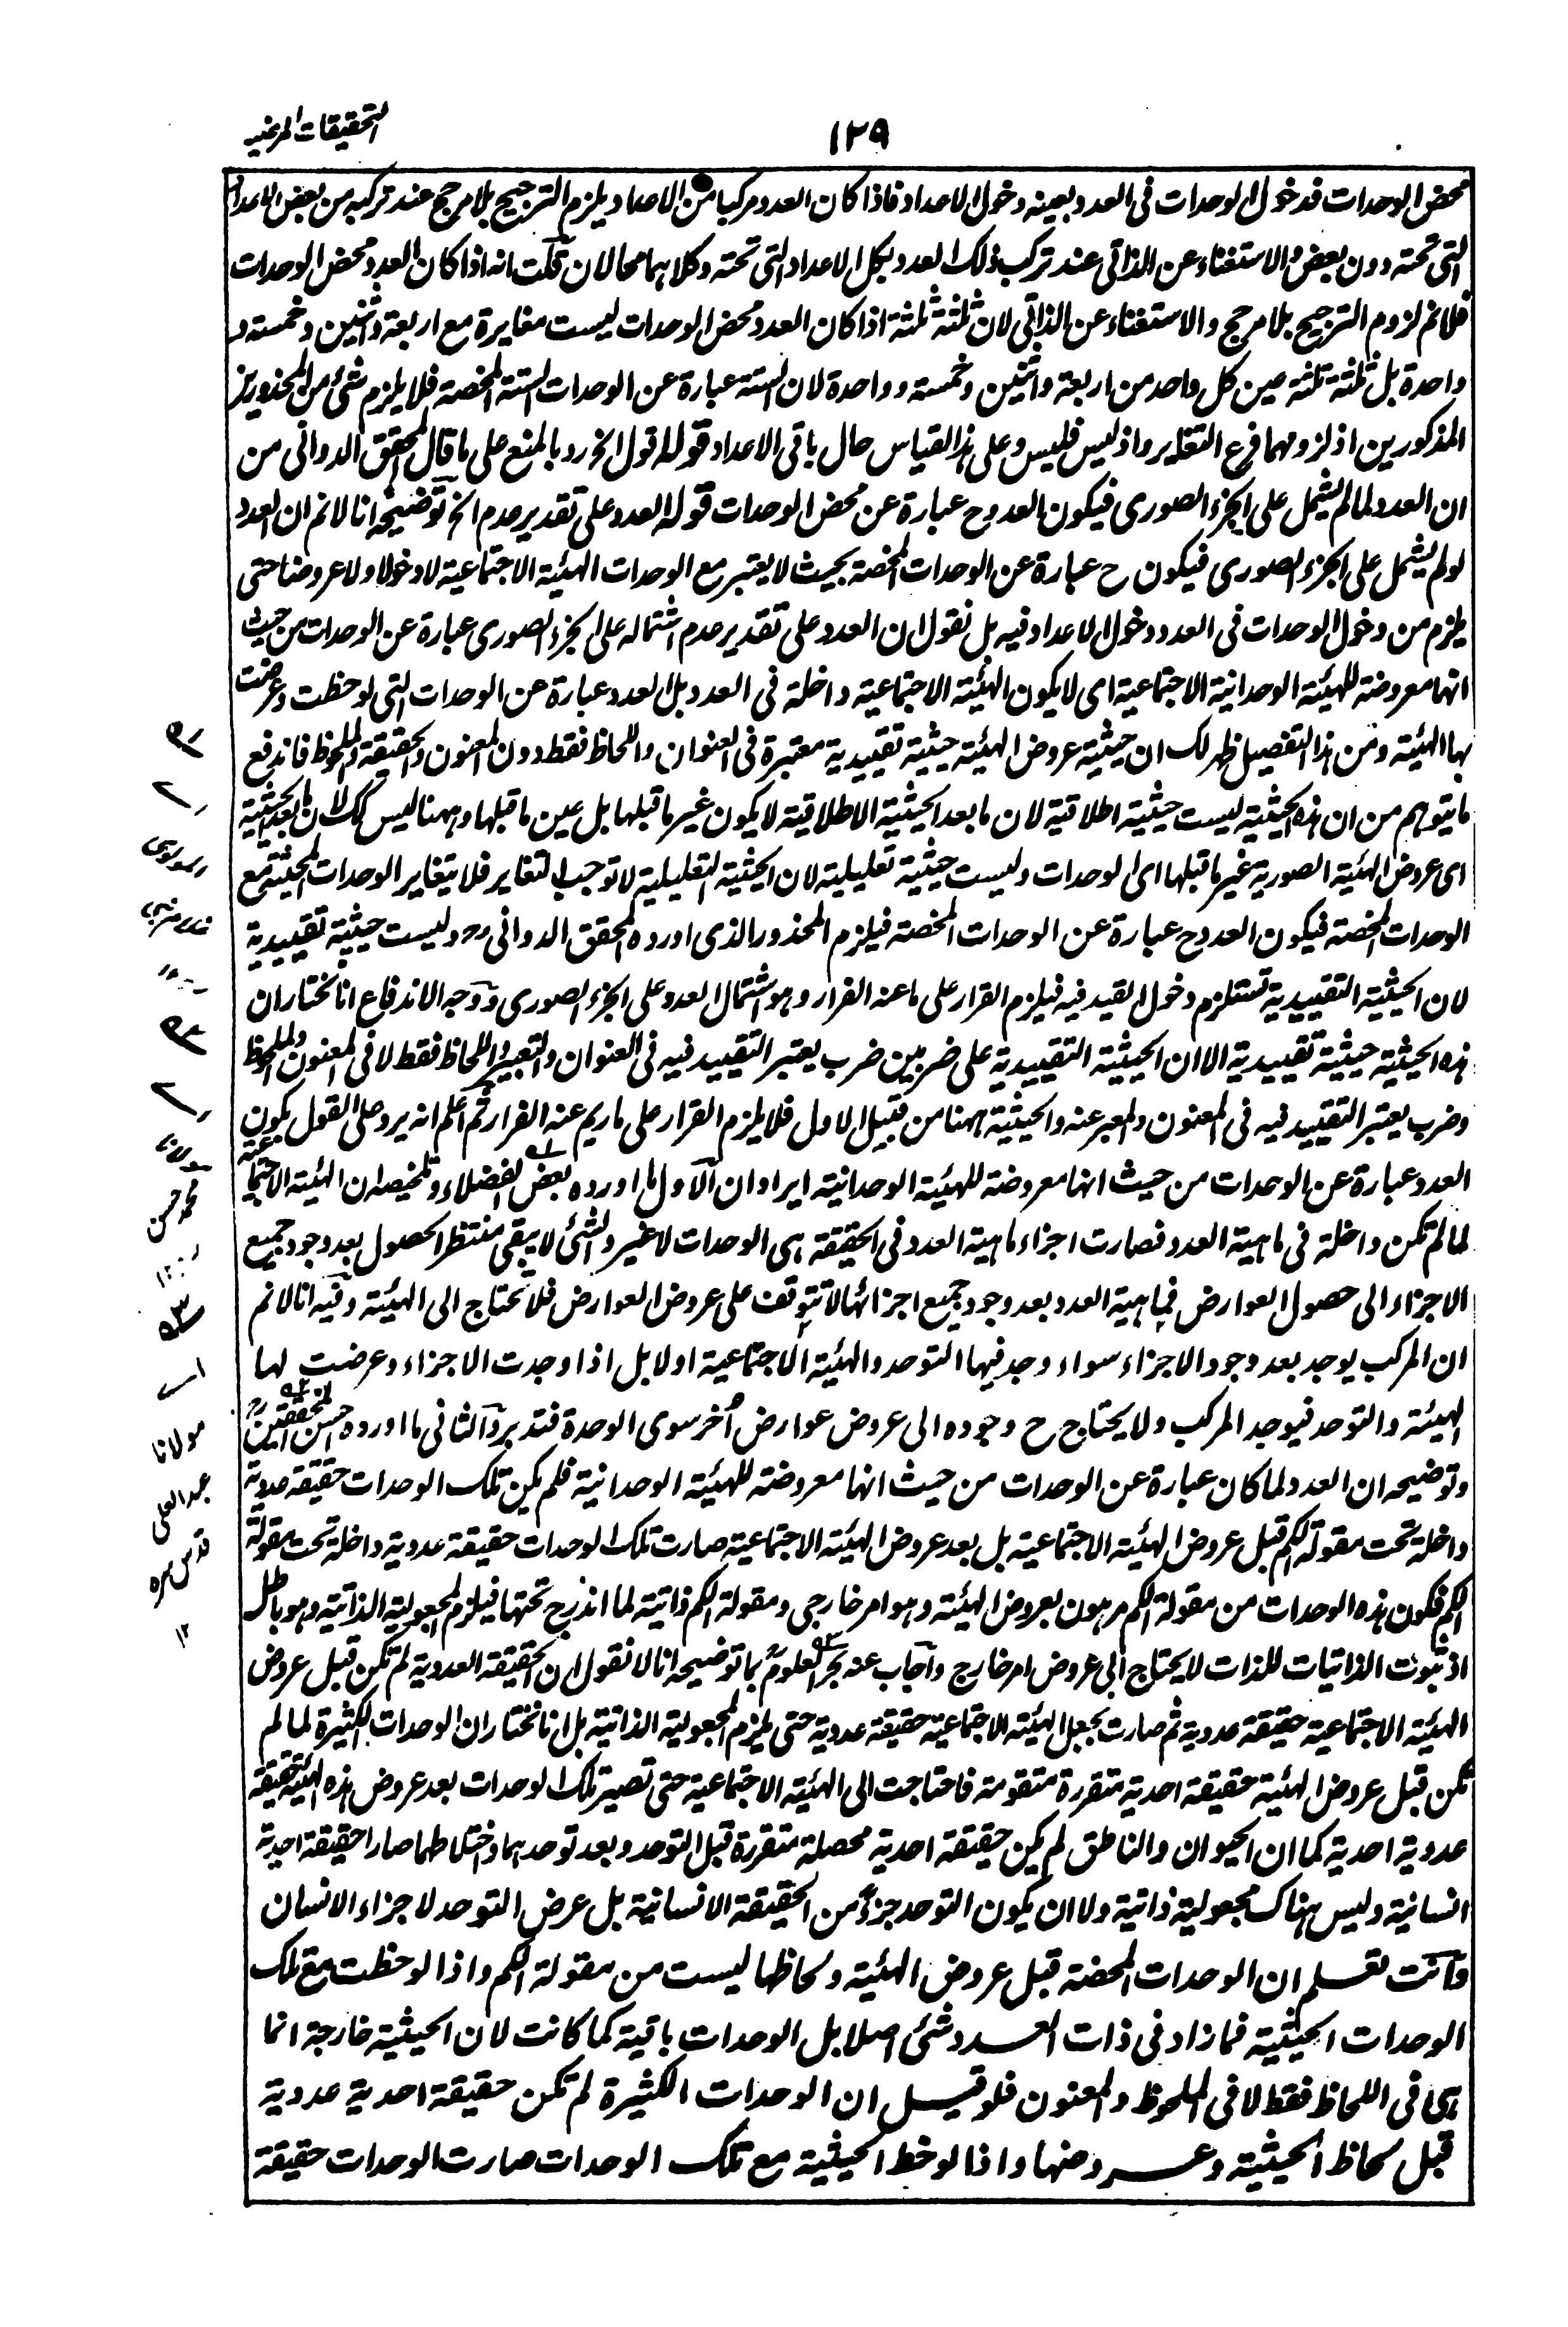 التحقيقات المرضية
١٢٩
محض الوحدات فدخول الوحدات فى العدد بعينه دخول الاعداد فاذا كان العدد مركبا من الاعداد يلزم الترجيح بلا مرجح عند تركبه من بعض الاعداد
التى تحته دون بعض والاستغناء عن الذاتى عند تركب ذلك العدد بكل الاعداد التى تحته وكلاهما محالان قلت انه اذا كان العدد محض الوحدات
فلا نم لزوم الترجيح بلا مرجح والاستغناء عن الذاتى لان ثلثة ثلثة اذا كان العدد محض الوحدات ليست مغايرة مع اربعة واثنين وخمسة و
واحدة بل ثلثة ثلثة عين كل واحد من اربعة واثنين وخمسة وواحدة لان الستة عبارة عن الوحدات الستة المحضة فلا يلزم شئ من المحذورين
المذكورين اذ لزومهما فرع التغاير واذ ليس فليس وعلى هذا القياس حال باقى الاعداد قوله اقول الخ رد بالمنع على ما قال المحقق الدوانى من
ان العدد لما لم يشمل على الجزء الصورى فيكون العدد ح عبارة عن محض الوحدات قوله العدد على تقدير عدم الخ توضيحه انا لا نم ان العدد
لو لم يشمل على الجزء الصورى فيكون ح عبارة عن الوحدات المحضة بحيث لا يعتبر مع الوحدات الهيئية الاجتماعية لا دخولا ولا عروضا حتى
يلزم من دخول الوحدات فى العدد دخول الاعداد فيه بل نقول ان العدد على تقدير عدم اشتماله على الجزء الصورى عبارة عن الوحدات من حيث
انها معروضة للهيئية الوحدانية الاجتماعية اى لا يكون الهيئية الاجتماعية داخلة فى العدد بل العدد عبارة عن الوحدات التى لوحظت وعرضت
بها الهيئية ومن هذا التفصيل ظهر لك ان حيثية عروض الهيئية حيثية تقييدية معتبرة فى العنوان واللحاظ فقط دون المعنون والحقيقة والملحوظ فاندفع
ما يتوهم من ان هذه الحيثية ليست حيثية اطلاقية لان ما بعد الحيثية الاطلاقية لا يكون غير ما قبلها بل عين ما قبلها وههنا ليس كك لان ما بعد الحيثية
اى عروض الهيئية الصورية غير ما قبلها اى الوحدات وليست حيثية تعليلية لان الحيثية التعليلية لا توجب التغاير فلا يتغاير الوحدات المحيثية مع
الوحدات المحضة فيكون العدد ح عبارة عن الوحدات المحضة فيلزم المحذور الذى اورده المحقق الدوانى رح وليست حيثية تقييدية
لان الحيثية التقييدية تستلزم دخول القيد فيه فيلزم القرار على ما عنه الفرار وهو اشتمال العدد على الجزء الصورى ووجه الاندفاع انا نختار ان
هذه الحيثية حيثية تقييدية الا ان الحيثية التقييدية على ضربين ضرب يعتبر التقييد فيه فى العنوان والتعبير واللحاظ فقط لا فى المعنون والملحوظ
وضرب يعتبر التقييد فيه فى المعنون والمعبر عنه والحيثية ههنا من قبيل الاول فلا يلزم القرار على ما ريم عنه الفرار ثم اعلم انه يرد على القول بكون
العدد عبارة عن الوحدات من حيث انها معروضة للهيئية الوحدانية ايرادان الاول ما اورده بعض الفضلاء وتلخيصه ان الهيئية الاجتماعية
لما لم تكن داخلة فى ماهية العدد فصارت اجزاء ماهية العدد فى الحقيقة هى الوحدات لا غير والشئ لا يبقى منتظر الحصول بعد وجود جميع
الاجزاء الى حصول العوارض فماهية العدد بعد وجود جميع اجزائها لا تتوقف على عروض العوارض فلا تحتاج الى الهيئية وفيه انا لا نم
ان المركب يوجد بعد وجود الاجزاء سواء وجد فيها التوحد والهيئية الاجتماعية اولا بل اذا وجدت الاجزاء وعرضت لها
الهيئة والتوحد فيوجد المركب ولا يحتاج ح وجوده الى عروض عوارض أخر سوى الوحدة فتدبر والثانى ما اورده احسن المحققين رح
وتوضيحه ان العدد لما كان عبارة عن الوحدات من حيث انها معروضة للهيئية الوحدانية فلم يكن تلك الوحدات حقيقة عددية
داخلة تحت مقولة الكم قبل عروض الهيئية الاجتماعية بل بعد عروض الهيئية الاجتماعية صارت تلك الوحدات حقيقة عددية داخلة تحت مقولة
الكم فكون هذه الوحدات من مقولة الكم مرهون بعروض الهيئية وهو امر خارجى ومقولة الكم ذاتية لما اندرج تحتها فيلزم المجعولية الذاتية وهو باطل
اذ ثبوت الذاتيات للذات لا يحتاج الى عروض امر خارج واجاب عنه بحر العلوم بما توضيحه انا لا نقول ان الحقيقة العددية لم تكن قبل عروض
الهيئية الاجتماعية حقيقة عددية ثم صارت بجعل الهيئية الاجتماعية حقيقة عددية حتى يلزم المجعولية الذاتية بل انا نختار ان الوحدات الكثيرة لما لم
تكن قبل عروض الهيئية حقيقة احدية متقررة متقومة فاحتاجت الى الهيئية الاجتماعية حتى تصير تلك الوحدات بعد عروض هذه الهيئية حقيقة
عددية احدية كما ان الحيوان والناطق لم يكن حقيقة احدية محصلة متقررة قبل التوحد وبعد توحدهما واختلاطهما صارا حقيقة احدية
انسانية وليس هناك مجعولية ذاتية ولا ان يكون التوحد جزءً من الحقيقة الانسانية بل عرض التوحد لاجزاء الانسان
وانت تعلم ان الوحدات المحضة قبل عروض الهيئية ولحاظها ليست من مقولة الكم واذا لوحظت مع تلك
الوحدات الحيثية فما زاد فى ذات العدد شئ اصلا بل الوحدات باقية كما كانت لان الحيثية خارجة انما
هى فى اللحاظ فقط لا فى الملحوظ والمعنون فلو قيل ان الوحدات الكثيرة لم تكن حقيقة احدية عددية
قبل لحاظ الحيثية وعروضها واذا لوخط الحيثية مع تلك الوحدات صارت الوحدات حقيقة
محمد حسن
مولانا
عبد العلى
قدس سره
١٢